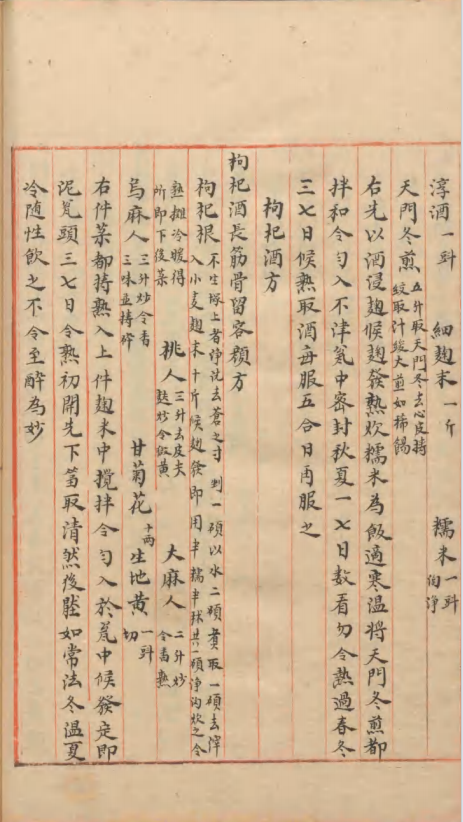 淳酒一㪷 細麹末一斤 糯米一㪷㕮淨
天門冬煎五升取天門冬去心皮持絞取汁緩火煎如稀餳
右先以酒浸麹候麹發熱炊糯米為飯適寒温將天門冬煎都
拌和令匀入不津瓮中密封秋夏一七日数看勿令熱過春冬
三七日候熟取酒每服五合日再服之
枸杞酒方
枸杞酒長筋骨留容顔方
枸杞根不生塚上者淨洗去蒼之寸剉一碩以水二碩煮取一碩去滓
入小麦麹末十斤候麹發即用半糯半秫共一碩淨淘炊之令
熟攤冷暖得所即下後藥 桃人三升去皮尖麩炒令微黄 大麻人二升炒令香熟
烏麻人三升炒令香三味並持碎 甘菊花十两 生地黄一㪷切
右件藥都持熟入上件麹米中攪拌令匀入於瓮中候發定即
泥瓮頭三七日令熟初開先下篘取清然後壓如常法冬温夏
冷随性飲之不令至醉為妙